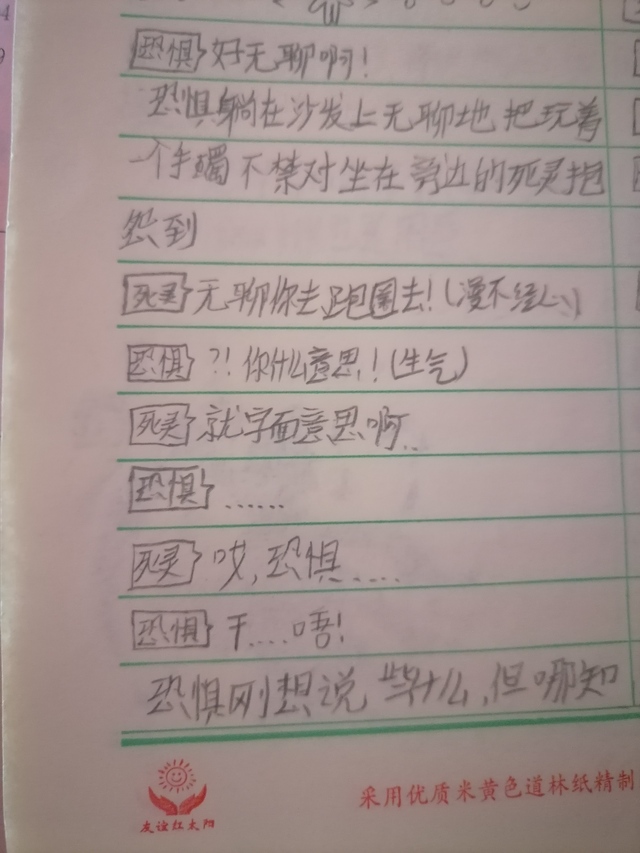 恐惧 好无聊啊！
恐惧躺在沙发上无聊地把玩着
一个手镯不禁对坐在旁边的死灵抱
怨到
死灵 无聊你去跑圈去！(漫不经心)
恐惧 ?！你什么意思！(生气)
死灵 就字面意思啊..
恐惧 ......
死灵 哎,恐惧....
恐惧 干....唔！
恐惧刚想说些什么,但哪知
友谊红太阳
采用优质米黄色道林纸精制